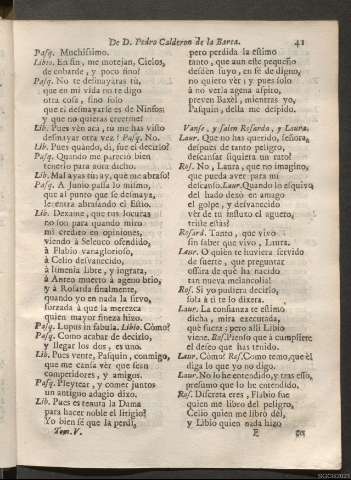 De D. Pedro Calderon de la Barca. 41
Pasq. Muchissimo.
Libio. En fin, me motejan, Cielos,
de cobarde, y poco fino?
Pasq. No te desmayaras tu,
que en mi vida no te digo
otra cosa, sino solo
que el desmayarse es de Ninfos;
y que no quieras creerme!
Lib. Pues vèn acà, tu me has visto
desmayar otra vez? Pasq. No.
Lib. Pues quando, di, fue el decirlo?
Pasq. Quando me pareciò bien
tenerlo para aora dicho.
Lib. Mal ayas tu; ay, que me abraso!
Pasq. A Junio passa lo mismo,
que al punto que se desmaya,
se entra abrasando el Estio.
Lib. Dexame, que tus locuras
no son para quando miro
mi credito en opiniones,
viendo à Seleuco ofendido,
à Flabio vanaglorioso,
à Celio desvanecido,
à Ismenia libre, y ingrata,
à Anteo muerto à ageno brio,
y à Rosarda finalmente,
quando yo en nada la sirvo,
forzada à que la merezca
quien mayor fineza hizo.
Pasq. Lupus in fabula. Libio. Còmo?
Pasq. Como acabar de decirlo,
y llegar los dos, es uno.
Lib. Pues vente, Pasquin, conmigo,
que me cansa vèr que sean
competidores, y amigos.
Pasq. Pleytear, y comer juntos
un antiguo adagio dixo.
Lib. Pues es tenuta la Dama
para hacer noble el litigio?
Yo bien sè que la perdì,
Tom. V.
pero perdida la estimo
tanto, que aun este pequeño
desdèn suyo, en fè de digno,
no quiero vèr; y pues solo
à no verla agena aspiro,
preven Baxèl, mientras yo,
Pasquin, della me despido.
Vanse, y salen Rosarda, y Laura.
Laur. Que no has querido, señora,
despues de tanto peligro,
descansar siquiera un rato?
Ros. No, Laura, que no imagino,
que pueda aver para mi
descanso. Laur. Quando lo esquivo
del hado dexò en amago
el golpe, y desvanecido
vèr de tu influxo el aguero,
triste estàs?
Rosard. Tanto, que vivo
sin saber que vivo, Laura.
Laur. O quièn te huviera servido
de suerte, que preguntar
ossàra de què ha nacido
tan nueva melancolia!
Ros. Si yo pudiera decirlo,
sola à ti te lo dixera.
Laur. La confianza te estimo
dicha, mira executada,
què fuera; pero alli Libio
viene. Ros. Pienso que à cumplirse
el deseo que has tenido.
Laur. Còmo? Ros. Como temo, que èl
diga lo que yo no digo.
Laur. No lo he entendido, y tras esso,
presumo que lo he entendido.
Ros. Discreta eres, Flabio fue
quien me librò del peligro,
Celio quien me librò del,
y Libio quien nada hizo
F